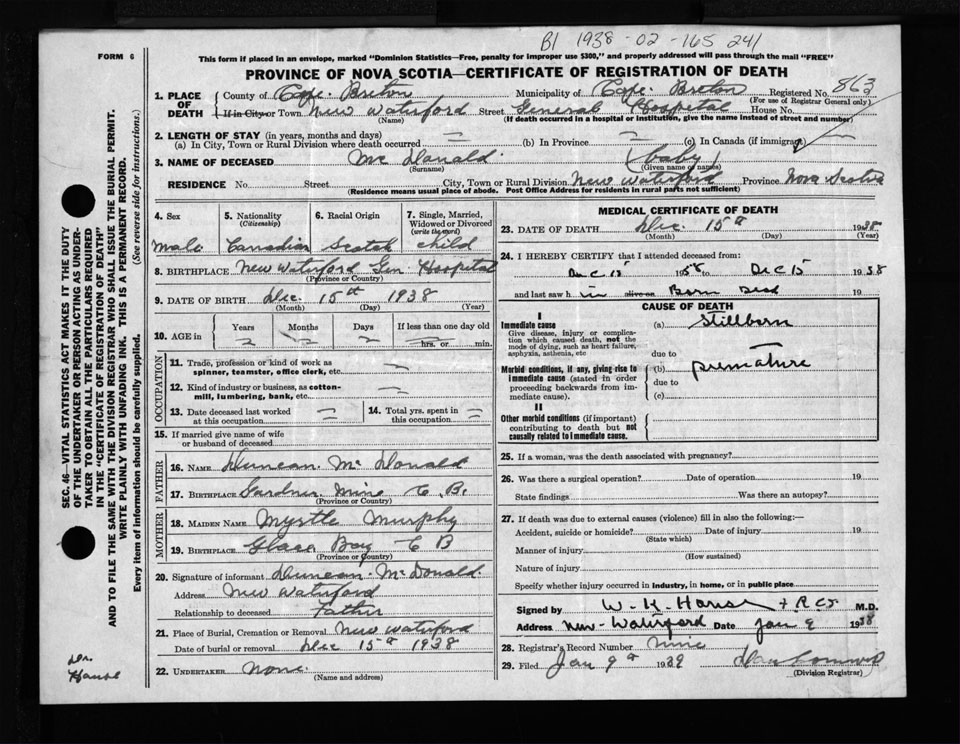 B1 1938-02-165 241
FORM 6
This form if placed in an envelope, marked "Dominion Statistics—Free, penalty for improper use $300," and properly addressed will pass through the mail "FREE"
PROVINCE OF NOVA SCOTIA—CERTIFICATE OF REGISTRATION OF DEATH
1. PLACE OF DEATH County of Cape Breton Municipality of Cape Breton Registered No. 863
(For use of Registrar General only)
If in City or Town New Waterford Street General Hospital House No.
(Name) (If death occurred in a hospital or institution, give the name instead of street and number)
2. LENGTH OF STAY (in years, months and days)
(a) In City, Town or Rural Division where death occurred (b) In Province (c) In Canada (if immigrant)
3. NAME OF DECEASED Mc Donald (baby)
(Surname) (Given name or names)
RESIDENCE No. Street City, Town or Rural Division New Waterford Province Nova Scotia
(Residence means usual place of abode. Post Office Address for residents in rural parts not sufficient)
4. Sex 5. Nationality (Citizenship) 6. Racial Origin 7. Single, Married, Widowed or Divorced (write the word)
Male Canadian Scotch child
8. BIRTHPLACE New Waterford Gen. Hospital
(Province or Country)
9. DATE OF BIRTH Dec. 15th 1938
(Month) (Day) (Year)
10. AGE in Years Months Days If less than one day old
hrs. or min.
OCCUPATION
11. Trade, profession or kind of work as spinner, teamster, office clerk, etc.
12. Kind of industry or business, as cotton-mill, lumbering, bank, etc.
13. Date deceased last worked at this occupation 14. Total yrs. spent in this occupation
15. If married give name of wife or husband of deceased
FATHER
16. NAME Duncan Mc Donald
17. BIRTHPLACE Gardner Mine C.B.
(Province or Country)
MOTHER
18. MAIDEN NAME Myrtle Murphy
19. BIRTHPLACE Glace Bay C B
(Province or Country)
20. Signature of informant Duncan McDonald
Address New Waterford
Relationship to deceased Father
21. Place of Burial, Cremation or Removal New Waterford
Date of burial or removal Dec 15th 1938
22. UNDERTAKER None
(Name and address)
MEDICAL CERTIFICATE OF DEATH
23. DATE OF DEATH Dec. 15th 1938
(Month) (Day) (Year)
24. I HEREBY CERTIFY that I attended deceased from:
Dec 15 1938 to Dec 15 1938
and last saw h im alive on Born Dead 19
CAUSE OF DEATH
I
Immediate cause (a) Stillborn
Give disease, injury or complication which caused death, not the mode of dying, such as heart failure, asphyxia, asthenia, etc
due to
Morbid conditions, if any, giving rise to immediate cause (stated in order proceeding backwards from immediate cause). (b) premature
due to
(c)
II
Other morbid conditions (if important) contributing to death but not causally related to immediate cause.
25. If a woman, was the death associated with pregnancy?
26. Was there a surgical operation? Date of operation 19
State findings Was there an autopsy?
27. If death was due to external causes (violence) fill in also the following:—
Accident, suicide or homicide? Date of injury 19
(State which)
Manner of injury
(How sustained)
Nature of injury
Specify whether injury occurred in industry, in home, or in public place
Signed by W. K. M.D.
Address New-Waterford Date Jan 9 1938
28. Registrar's Record Number nine
29. Filed Jan 9th 1939
(Division Registrar)
SEC. 46—VITAL STATISTICS ACT MAKES IT THE DUTY
OF THE UNDERTAKER OR PERSON ACTING AS UNDER-
TAKER TO OBTAIN ALL THE PARTICULARS REQUIRED
IN THE "CERTIFICATE OF REGISTRATION OF DEATH"
AND TO FILE THE SAME WITH THE DIVISION REGISTRAR WHO SHALL ISSUE THE BURIAL PERMIT.
WRITE PLAINLY WITH UNFADING INK. THIS IS A PERMANENT RECORD.
Every item of information should be carefully supplied. (See reverse side for instructions.)
Dr.